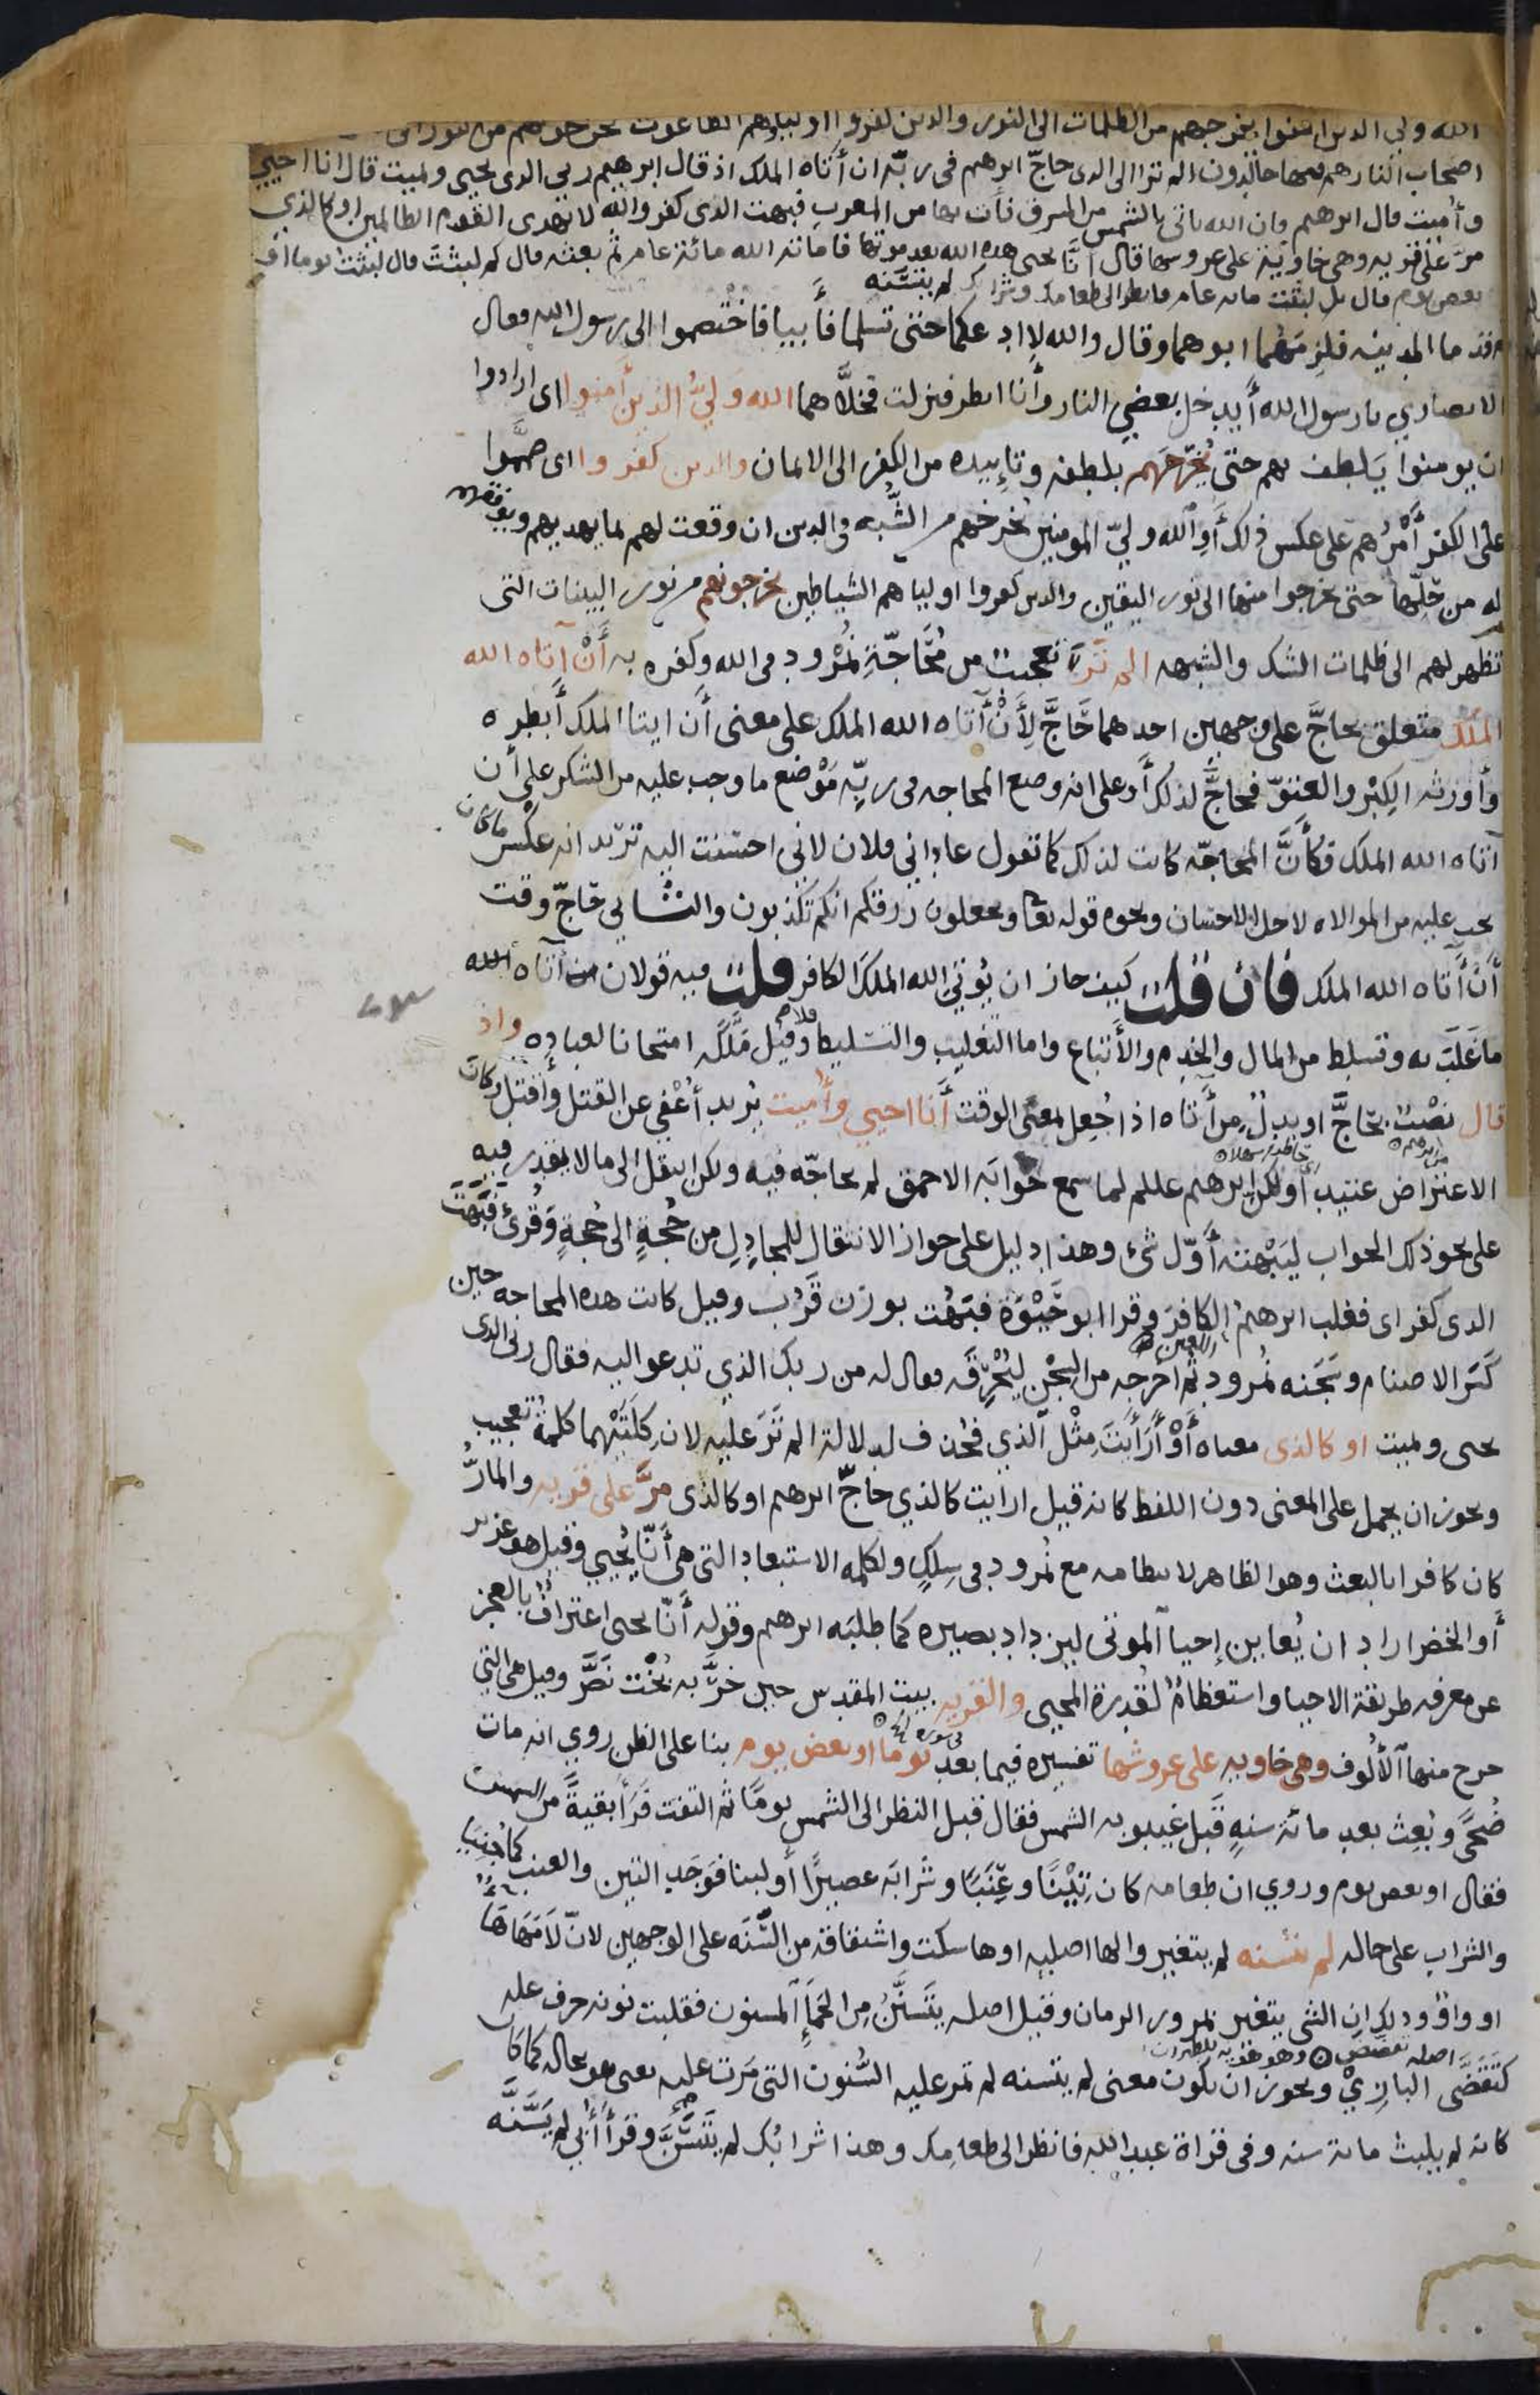 الله ولي الدين امنوا يخرجهم من الظلمات الى النور والدين كفروا اولياوهم الطاغوت يخرجونهم من النور الى
اصحاب النار هم فيها خالدون الم تر الى الدى حاجّ ابرهيم فى ربّه ان أتاه الملك اذ قال ابرهيم ربى الدى يحيى ويميت قال انا احيي
وأميت قال ابرهيم فان الله ياتى بالشمس من المشرق فأت بها من المغرب فبهت الدى كفر والله لا يهدى القوم الظالمين او كالذي
مرّ على قريه وهى خاوية على عروشها قال أنّا يحى هده الله بعد موتها فاماته الله مائة عام ثم بعثه قال كم لبثتَ قال لبثت يوما او
بعض يوم قال بل لبثت مايه عام فانظر الى طعامك وشرابك لم يتسَنَّه
قدما المدينه فلزمَهُما ابوهما وقال والله لا ادعكما حتى تسلما فأبيا فاختصموا الى رسول الله فقال
الانصاري يا رسول الله أيدخل بعضي النار وأنا انظر فنزلت فخلاّهما الله وَليُّ الذين أمنوا اى ارادوا
ان يومنوا يَلطف بهم حتى يُخرجَهم بلطفه وتاييده من الكفر الى الايمان والدين كفروا اى صمَّموا
على الكفر أمْرُهم على عكس ذلك أَوِ الله وليّ المومنين يخرجهم من الشُّبه فى الدين ان وقعت لهم بما يهديهم ويوفقهم
له من حَلّها حتى يخرجوا منها الى نور اليقين والدين كفروا اولياهم الشياطين يخرجونهم من نور البينات التى
تظهر لهم الى ظلمات الشك والشبهه الم تَرَ تعجيبٌ من مُحَاجّةِ نُمْرود فى الله وكفره به أَنْ آتاه الله
الملك متعلق بحاجَّ على وجهين احدهما حَاجَّ لِأَنْ أتاه الله الملك على معنى أن ايتا الملك أبطره
وأورثه الكِبْر والعتوّ فحاجَّ لذلك أو على انه وضع المحاجه فى ربّه مَوْضع ما وجب عليه من الشكر على أن
آتاه الله الملك فكأنَّ المحاجّه كانت لذلك كما تقول عاداني فلان لاني احسنت اليه تريد انه عكْس ما كان
يجب عليه من الموالاه لاجل الاحسان ونحوه قوله تعا وتجعلون رزقكم انكم تكذبون والثاني حَاجّ وقت
أن أتاه الله الملك فان قلت كيف جاز ان يُوتي الله الملكَ الكافر قلت فيه قولان آتاه الله
ما غَلَب به وتسلط من المال والخدم والأتباع واما التغليب والتسليط فلا وقيل مَلَّكه امتحانا لعباده واذ
قال نصْبٌ بحَاجَّ او بدلٌ من أتاه اذا جُعِل بمعنى الوقت أنا احيي وأميت يُريد أعْفي عن القتل وأقتل وكان
الاعتراض عتيدا ولكن ابرهيم علم لما سمع جَوابَه الاحمق لم يحاجّه فيه ولكن انتقل الى ما لا يقدر فيه
على نحو ذلك الجواب ليَبْهته أوّل شئ وهذا دليل على جواز الانتقال للمجادِل من حُجةٍ الى حُجةٍ وقُرئ فبَهَت
الدى كفر اى فغلب ابرهيمُ الكافرَ وقرا ابو حَيْوَة فبَهُت بوزن قَرُب وقيل كانت هده المحاجه حين
كَسّر الاصنام وسَجَنه نُمرود ثم أخرجه من السجن ليُحرِّقَه فقال له من ربك الذي تدعوا اليه فقال ربى الدى
يحى ويميت او كالذى معناه أَوْ أَرَأيتَ مِثْل الذي فحُذف لدلالة الم تَرَ عليه لان كِلتَيْهما كلمةُ تعجيب
ويجوز ان يحمل على المعنى دون اللفظ كانه قيل ارايت كالذي حاجّ ابرهيم او كالذى مرَّ على قريه والمارُّ
كان كافرا بالبعث وهو الظاهر لانتظامه مع نُمرود فى سِلكٍ ولكلمه الاستبعاد التى هى أنّا يُحيي وقيل هو عزير
أو الخضر اراد ان يُعاين إحيا الموتى ليزداد بصيره كما طلبَه ابرهيم وقوله أنّا يحى اعترافٌ بالعجز
عن معرفه طريقة الاحيا واستعظامٌ لقدرة المحيى والقريه بيت المقدس حين خرّبه بُخْت نصَّر وقيل هى التي
خرج منها الألُوف وهى خاويه على عروشها تفسيره فيما بعد يوما او بعض يوم بنا على الظن روي انه مات
ضُحىً وبُعِث بعد مائة سنهٍ قَبل غيبوبه الشمس فقال قبل النظر الى الشمس يومًا ثم التفت فرَأ بقيةً من الشمس
فقال او بعض يوم وروي ان طعامه كان تِيْنًا وعِنَبًا وشرابَه عصيرًا أو لبنا فوَجَد التين والعنب كما جُنِيَا
والشراب على حاله لم يتسنه لم يتغير والها اصليه او ها سكت واشتقاقه من السَّنَه على الوجهين لانّ لَامَهَا هَا
او واوٌ ودلك ان الشى يتغير بمرور الزمان وقيل اصله يتَسَنَّن من الحَمَإِ المسنون فقلبت نونه حرف عله
كتقَضَّى البازِيْ ويجوز ان يكون معنى لم يتسنه لم تمر عليه السُّنون التى مَرت عليه يعنى هو بحاله كما كا
كانه لم يلبث مائة سنه وفى قراة عبد الله فانظر الى طعامك وهذا شرابُك لم يَتَسَنَّ وقرأ أُبي لم يَسَّنَّه